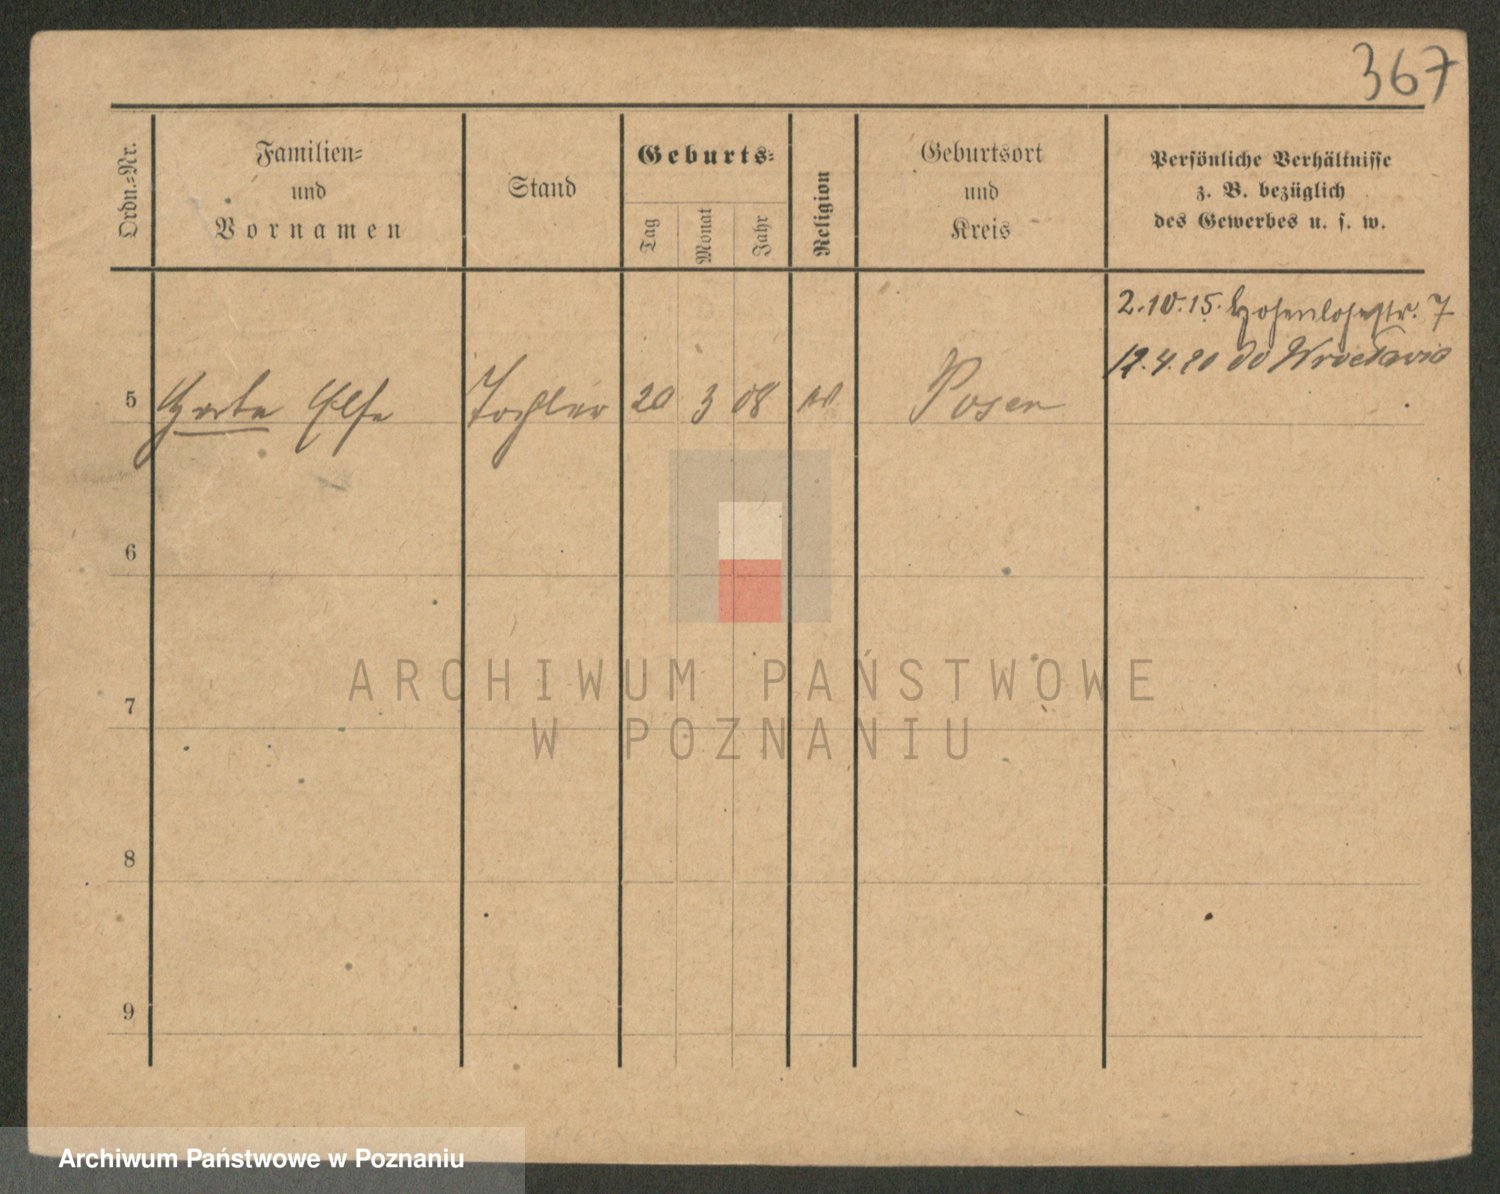 367
Ordn.=Nr.
Familien=
und
Vornamen
Stand
Geburts=
Tag
Monat
Jahr
Religion
Geburtsort
und
Kreis
Persönliche Verhältnisse
z. B. bezüglich
des Gewerbes u. s. w.
2.10.15. Hohenlohestr. 7
12.4.20 do Wrocławia
5 Else Tochter 20 3 08 Posen
6
7
8
9
ARCHIWUM PAŃSTWOWE
W POZNANIU
Archiwum Państwowe w Poznaniu